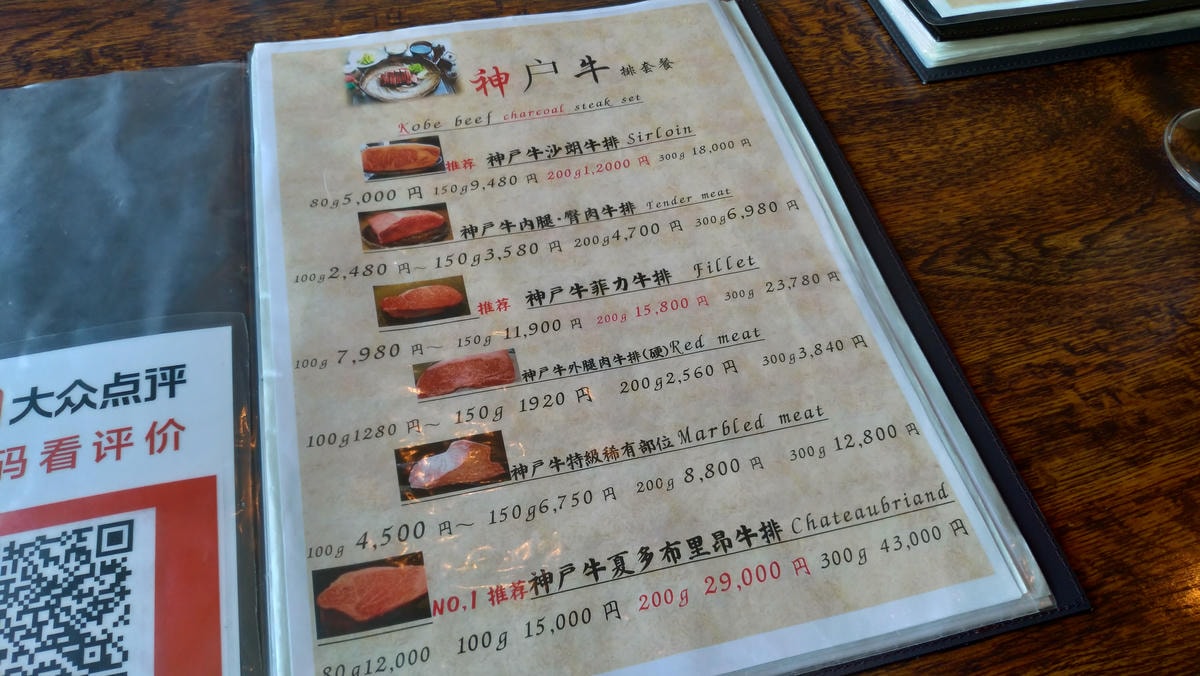 神户牛 排套餐
Kobe beef charcoal steak set
推荐 神戸牛沙朗牛排 Sirloin
80g5,000 円 150g9,480 円 200g1,2000 円 300g 18,000 円
神戸牛内腿·臀肉牛排 Tender meat
100g2,480 円~ 150g3,580 円 200g4,700 円 300g6,980 円
推荐 神戸牛菲力牛排 Fillet
100g 7,980 円~ 150g 11,900 円 200g 15,800 円 300g 23,780 円
神戸牛外腿肉牛排(硬)Red meat
100g1280 円~ 150g 1920 円 200g2,560 円 300g3,840 円
神戸牛特級稀有部位 Marbled meat
100g 4,500 円~ 150g6,750 円 200g 8,800 円 300g 12,800 円
NO,1 推荐 神戸牛夏多布里昂牛排 Chateaubriand
80g12,000 100g 15,000 円 200g 29,000 円 300g 43,000 円
大众点评
码看评价